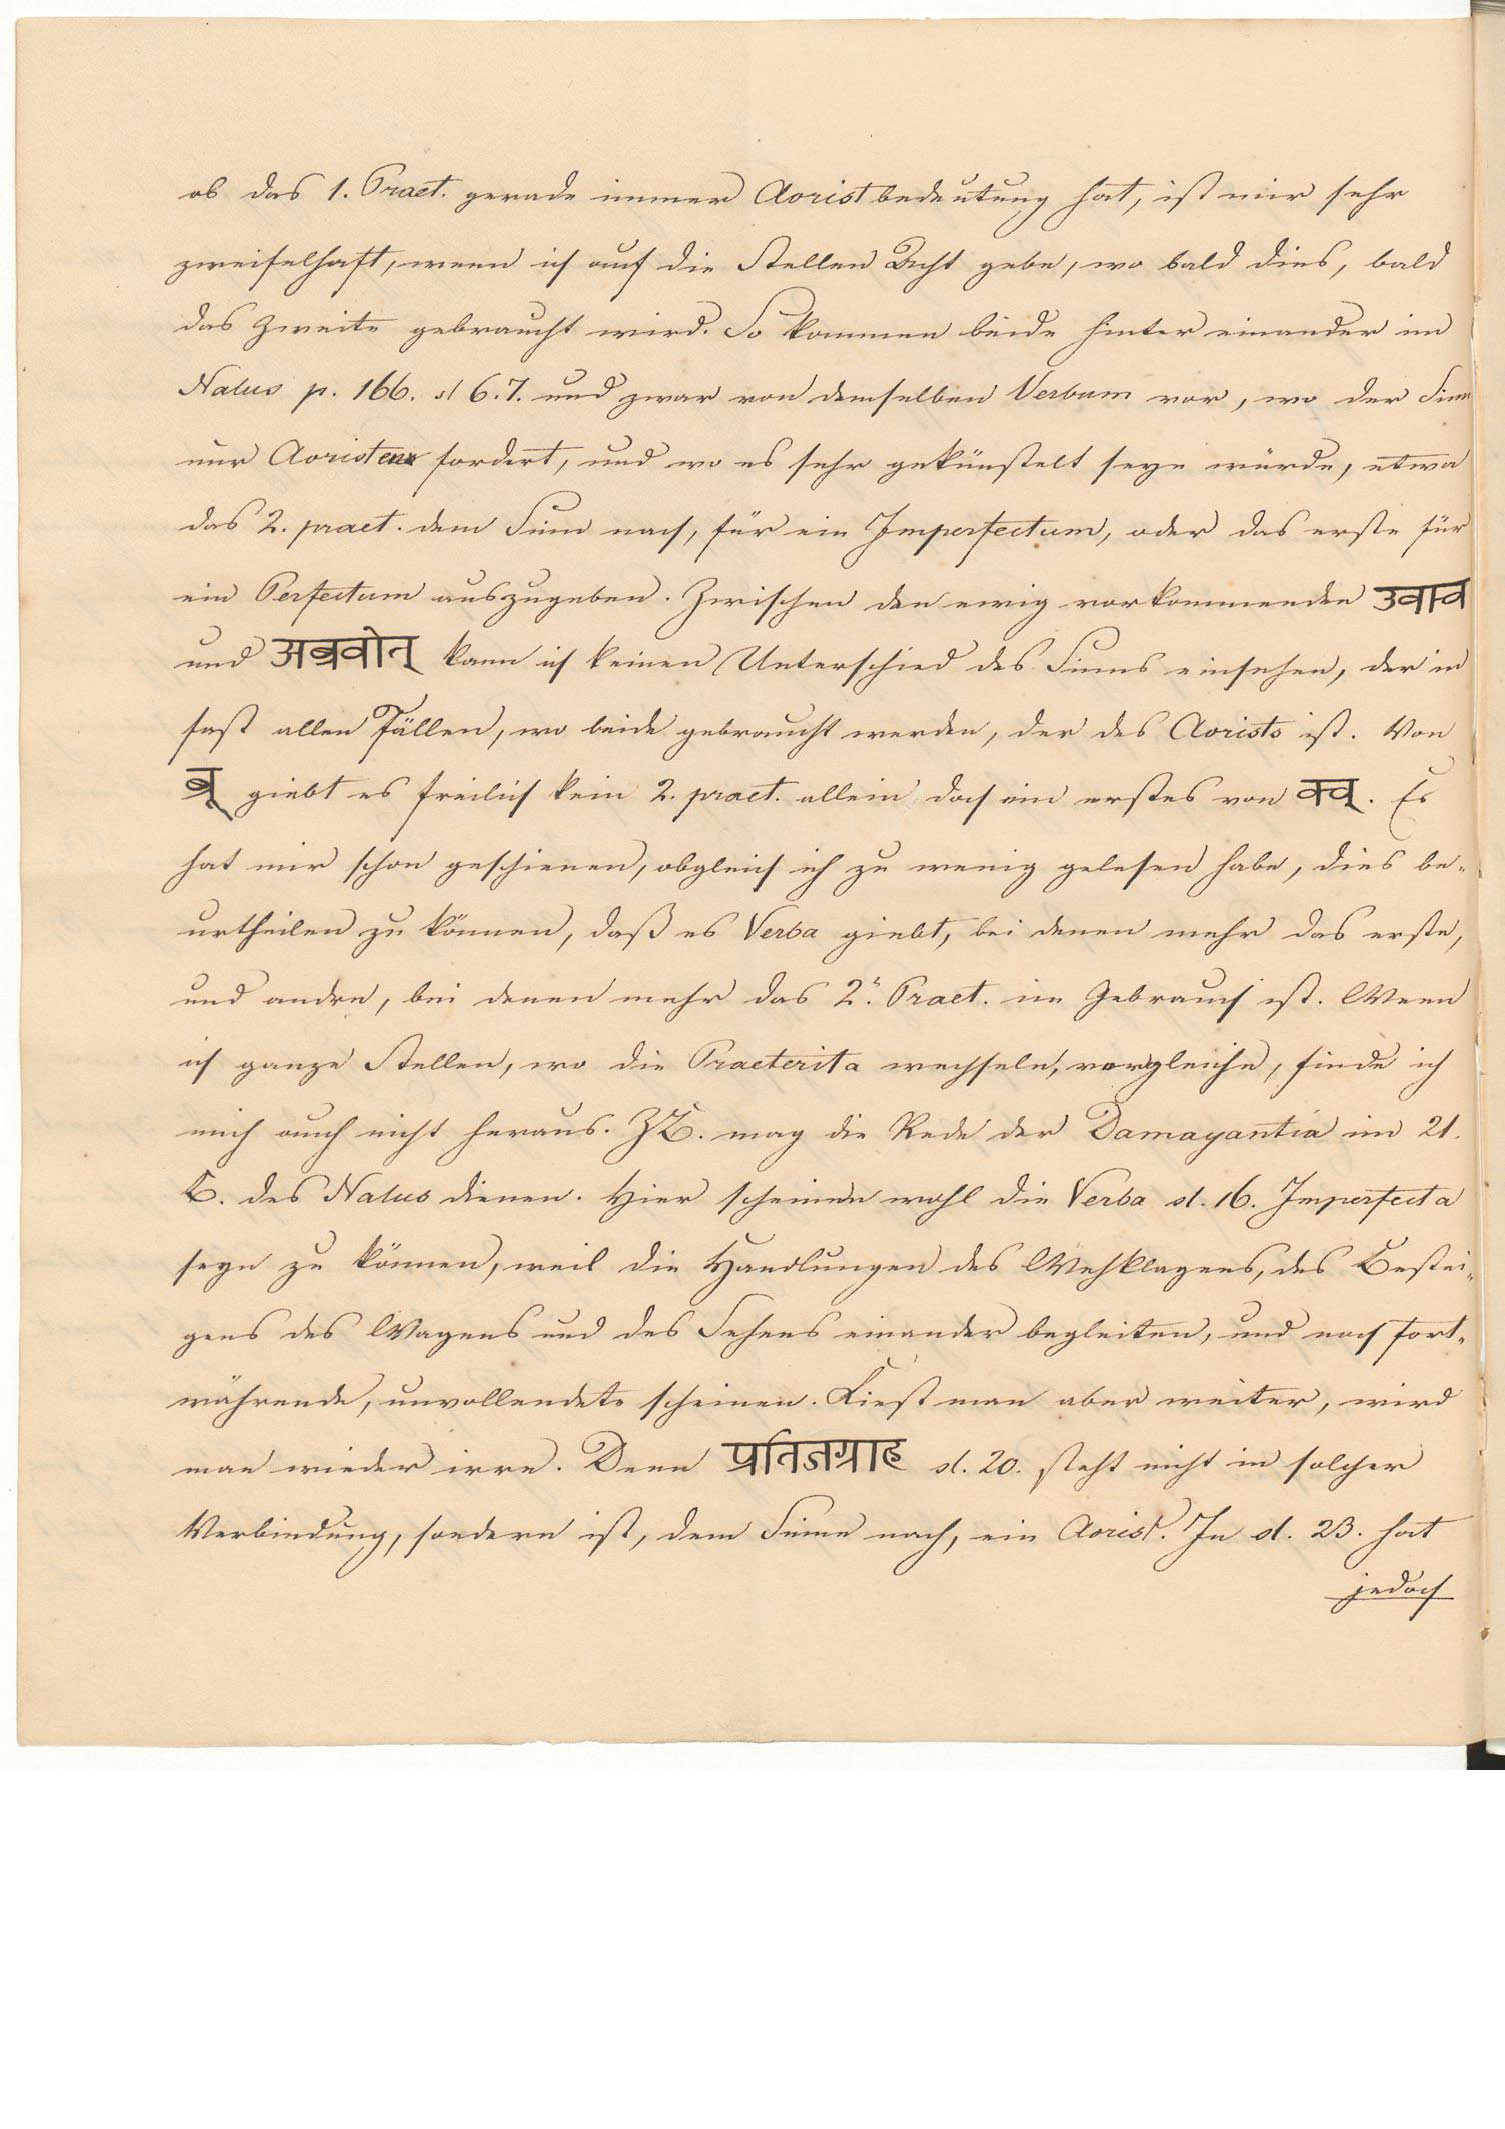 ob das 1. Praet. gerade immer Aoristbedeutung hat, ist mir sehr
zweifelhaft, wenn ich auf die Stellen Acht gebe, wo bald dies, bald
das Zweite gebraucht wird. So kommen beide hinter einander im
Nalus p. 166. sl 6.7. und zwar von demselben Verbum vor, wo der Sinn
nur Aoristen fordert, und wo es sehr gekünstelt seyn würde, etwa
das 2. praet. dem Sinn nach, für ein Imperfectum, oder das erste für
ein Perfectum auszugeben. Zwischen den ewig vorkommenden उवाच
und अब्रवीत् kann ich keinen Unterschied des Sinns einsehen, der in
fast allen Fällen, wo beide gebraucht werden, der des Aorists ist. Von
ब्रू giebt es freilich kein 2. praet. allein doch ein erstes von वच्. Es
hat mir schon geschienen, obgleich ich zu wenig gelesen habe, dies be-
urtheilen zu können, daß es Verba giebt, bei denen mehr das erste,
und andre, bei denen mehr das 2te. Praet. im Gebrauch ist. Wenn
ich ganze Stellen, wo die Praeterita wechseln, vergleiche, finde ich
mich auch nicht heraus. ZB. mag die Rede der Damayantia im 21.
B. des Nalus dienen. Hier scheinen wohl die Verba sl. 16. Imperfecta
seyn zu können, weil die Handlungen des Wehklagens, des Bestei-
gens des Wagens und des Sehens einander begleiten, und noch fort-
währende, unvollendete scheinen. Liest man aber weiter, wird
man wieder irre. Denn प्रतिजग्राह sl. 20. steht nicht in solcher
Verbindung, sondern ist, dem Sinne nach, ein Aorist. In sl. 23. hat
jedoch